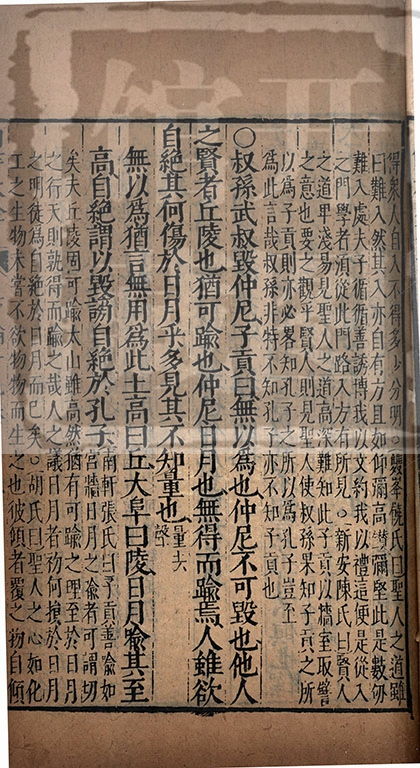 得衆人自入不得多少分明○雙峯饒氏曰聖人之道雖
曰難入然其入亦自有方且如仰彌高鑽彌堅此是數仞
難入處夫子循循善誘博我以文約我以禮這便是從入
之門學者須從此門路入方有所見○新安陳氏曰賢人
之道卑淺易見聖人之道高深難知此子貢以牆室取譬
之意也要之觀乎賢人則見聖人使叔孫果知子貢之所
以爲子貢則亦必畧知孔子之所以爲孔子豈至
爲此言哉叔孫非特不知孔子亦不知子貢也
○叔孫武叔毀仲尼子貢曰無以爲也仲尼不可毀也他人
之賢者丘陵也猶可踰也仲尼日月也無得而踰焉人雖欲
自絕其何傷於日月乎多見其不知量也量去聲
無以爲猶言無用爲此土高曰丘大阜曰陵日月喻其至
高自絕謂以毀謗自絕於孔子南軒張氏曰子貢善喻如
宮牆日月之喻者可謂切
矣夫丘陵固可踰太山雖高然猶有可踰之理至於日月
之行天則孰得而踰之哉人之議日月者初何損於日月
之明徒爲自絕於日月而已矣○胡氏曰聖人之心如化
工之生物夫嘗不欲物物而生之也彼傾者覆之物自傾